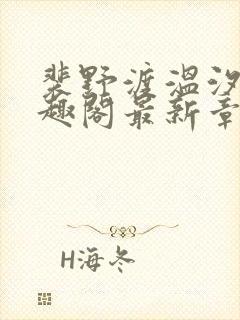 裴野渡温汐
趣阁最新章
H海冬